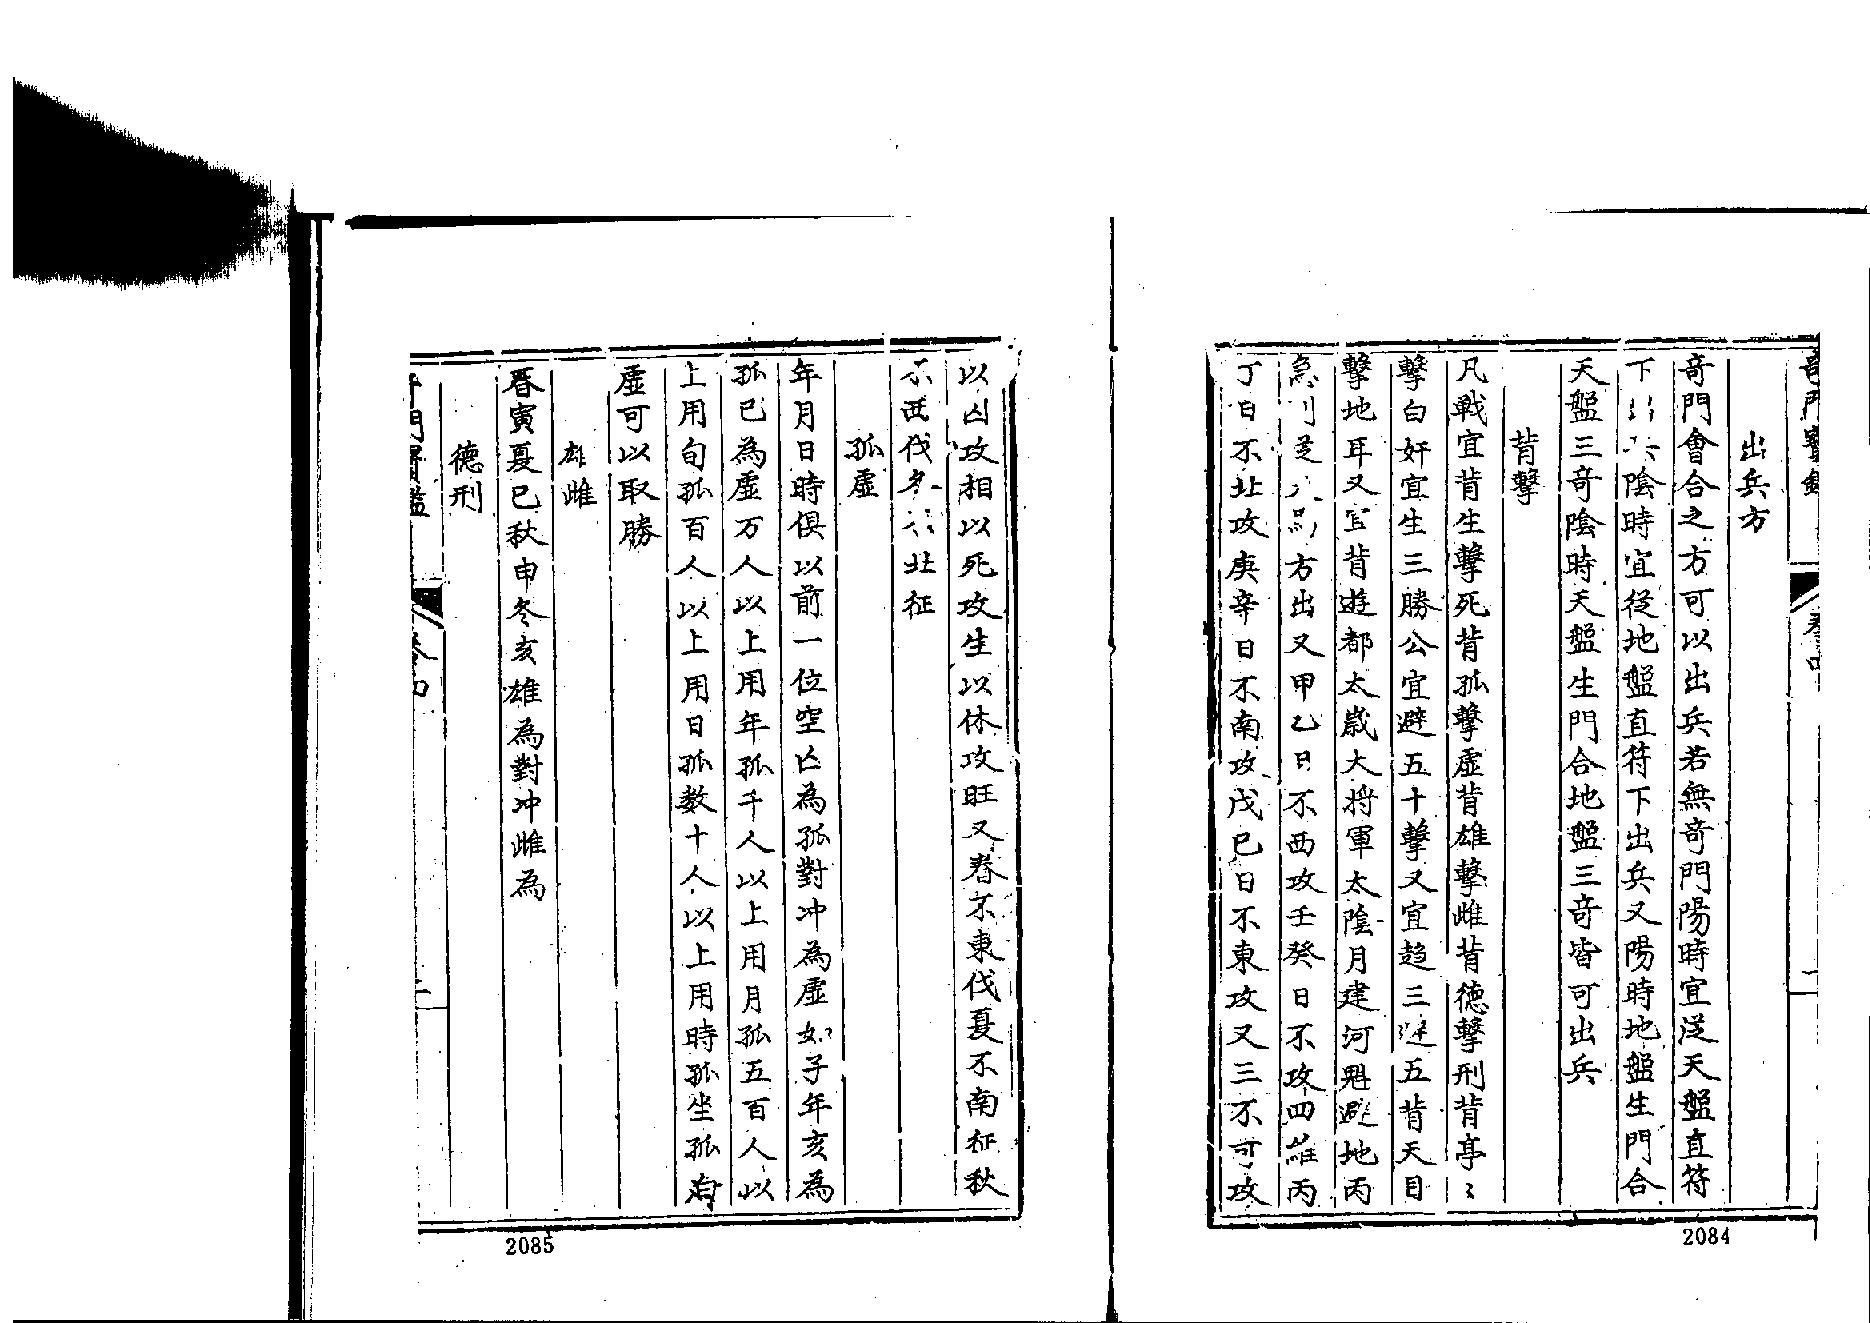 奇門寳鑑
卷四
出兵方
奇門會合之方可以出兵若無奇門陽時宜從天盤直符
下出兵陰時宜從地盤直符下出兵又陽時地盤生門合
天盤三奇陰時天盤生門合地盤三奇皆可出兵
背擊
凡戰宜背生擊死背孤擊虛背雄擊雌背德擊刑背亭〻
擊白奸宜生三勝公宜避五十擊又宜趋三避五背天目
擊地耳又宜背遊都太歲大將軍太陰月建河魁避地丙
急則從方出又甲乙日不西攻壬癸日不攻四維丙
丁日不北攻庚辛日不南攻戊巳日不東攻又三不可攻
2084
以囚攻相以死攻生以休攻旺又春不東伐夏不南征秋
不西伐冬不北征
孤虛
年月日時俱以前一位空亡為孤對冲為虛如子年亥為
孤巳為虛万人以上用年孤千人以上用月孤五百人以
上用旬孤百人以上用日孤数十人以上用時孤坐孤向
虛可以取勝
雄雌
春寅夏巳秋申冬亥雄為對冲雌為
德刑
奇門寳鑑
卷四
三
2085